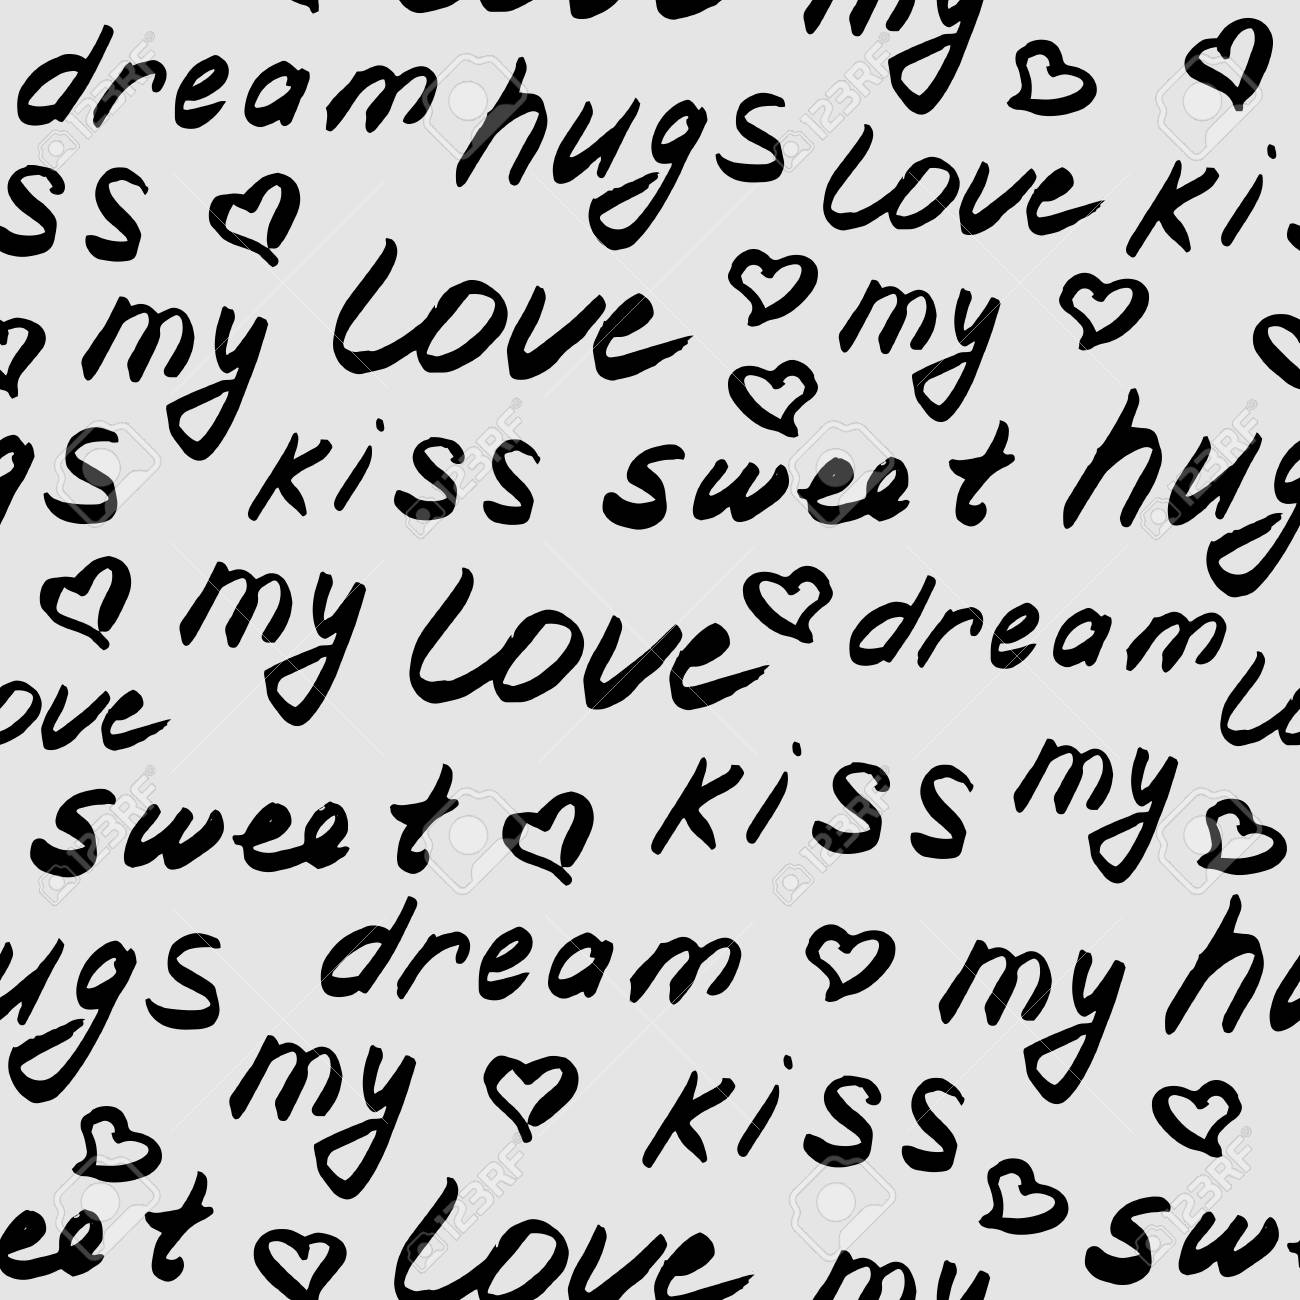 my
dream hugs love ki
ss
my love my
gs kiss sweet hug
my love dream
ove lo
sweet kiss my
ugs dream my hu
my kiss
eet love my swe